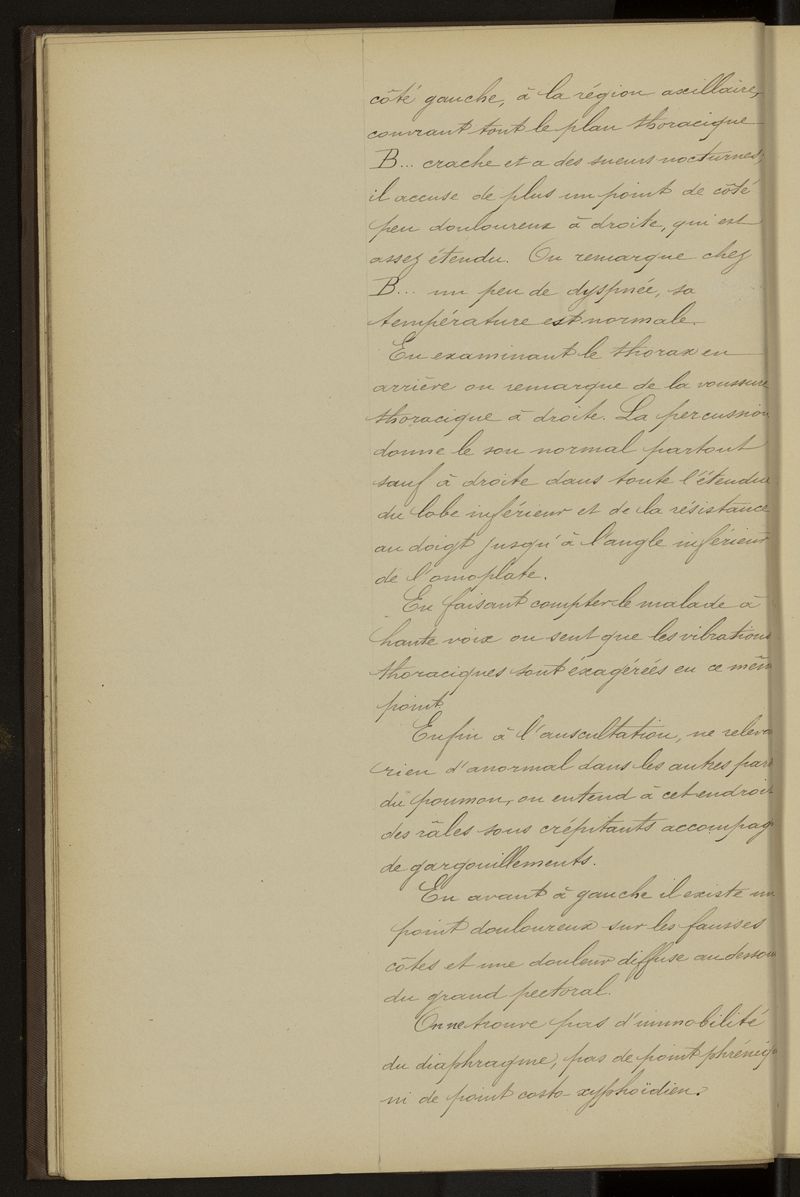 côté gauche, à la région axillaire,
couvrant tout le plan thoracique
B... crache et a des sueurs nocturnes;
il accuse de plus un point de côté
peu douloureux à droite, qui est
assez étendu. On remarque chez
B... un peu de dyspnée, sa
température est normale.
En examinant le thorax en
arrière on remarque de la voussure
thoracique à droite. La percussion
donne le son normal partout
sauf à droite dans toute l'étendue
du lobe inférieur et de la résistance
au doigt jusqu'à l'angle inférieur
de l'omoplate.
En faisant compter le malade à
haute voix on sent que les vibrations
thoraciques sont éxagérées en ce mêm
point.
Enfin à l'auscultation, ne releva
rien d'anormal dans les autres part
du poumon, on entend à cet endroit
des râles sous crépitants accompag
de gargouillements.
En avant à gauche il existe un
point douloureux sur les fausses
côtes et une douleur diffuse au dessou
du grand pectoral.
On ne trouve pas d'immobilité
du diaphragme, pas de point phréniq
ni de point costo xyphoïdien.